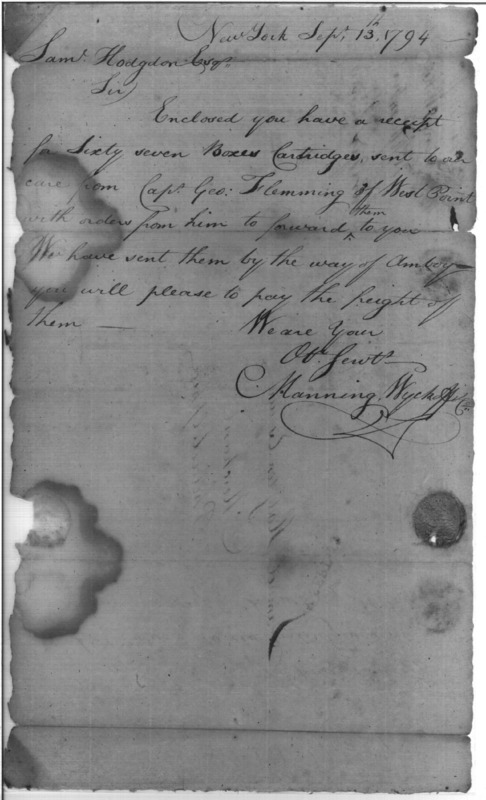 New York Sepr. 13th, 1794
Saml. Hodgdon Esqr.
Sir
Enclosed you have a receipt
for Sixty seven Boxes Cartridges, sent to our
care from Capt. Geo: Flemming of West Point
with orders from him to forward ^them to you
We have sent them by the way of Amboy —
you will please to pay the freight of
them —
We are Your
Obt. Servts.
Manning, Wyckoff & Co.